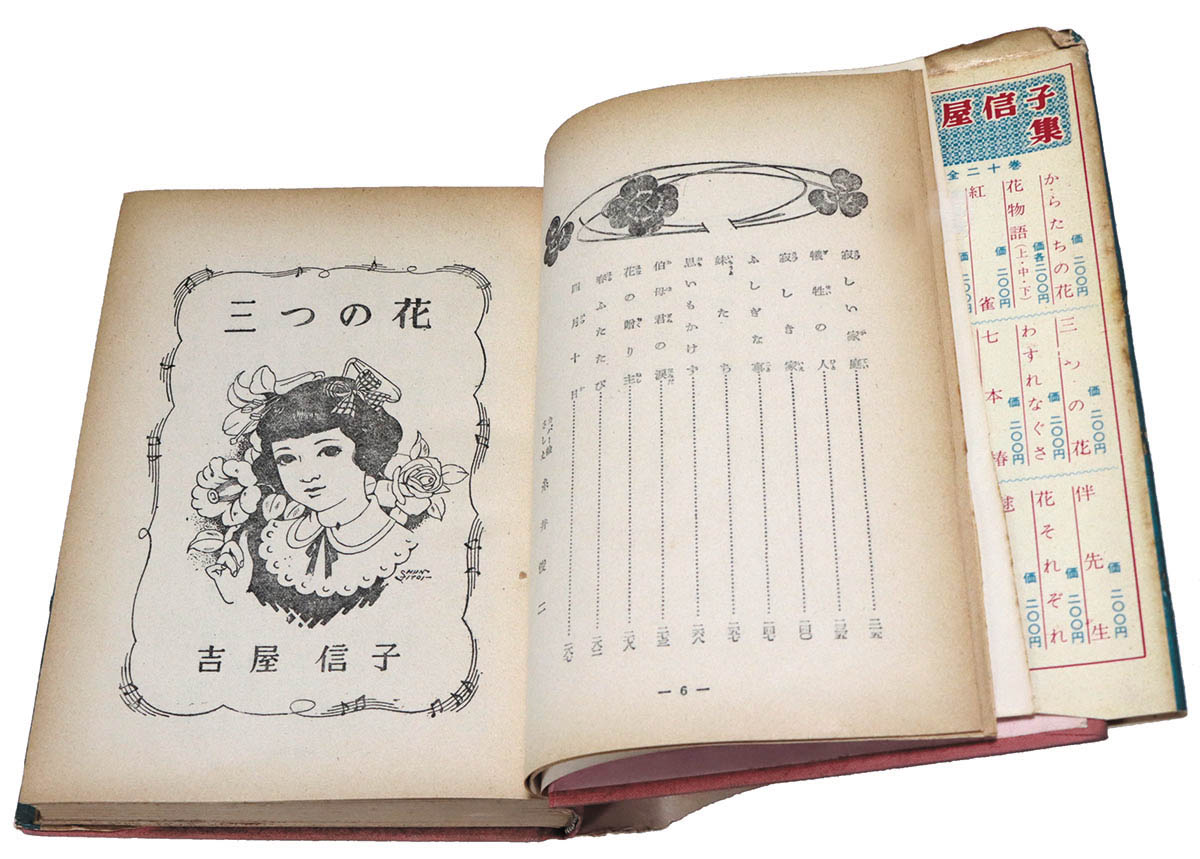 屋信子
集
全二十巻
からたちの花 価 二〇〇円
三つの花 価 二〇〇円
伴先生 価 二〇〇円
花物語(上・中・下) 価各二〇〇円
わすれなぐさ 価 二〇〇円
花それぞれ 価 二〇〇円
紅雀 価 二〇〇円
七本椿 価 二〇〇円
価 二〇〇円
寂しい家庭
犠牲の人
寂しき家
ふしぎな事
妹たち
思いもかけず
伯母君の涙
花の贈り主
春ふたたび
四月十日
カバー絵
さしえ
糸井俊二
— 6 —
三つの花
SHUN-
ITOI-
吉屋信子